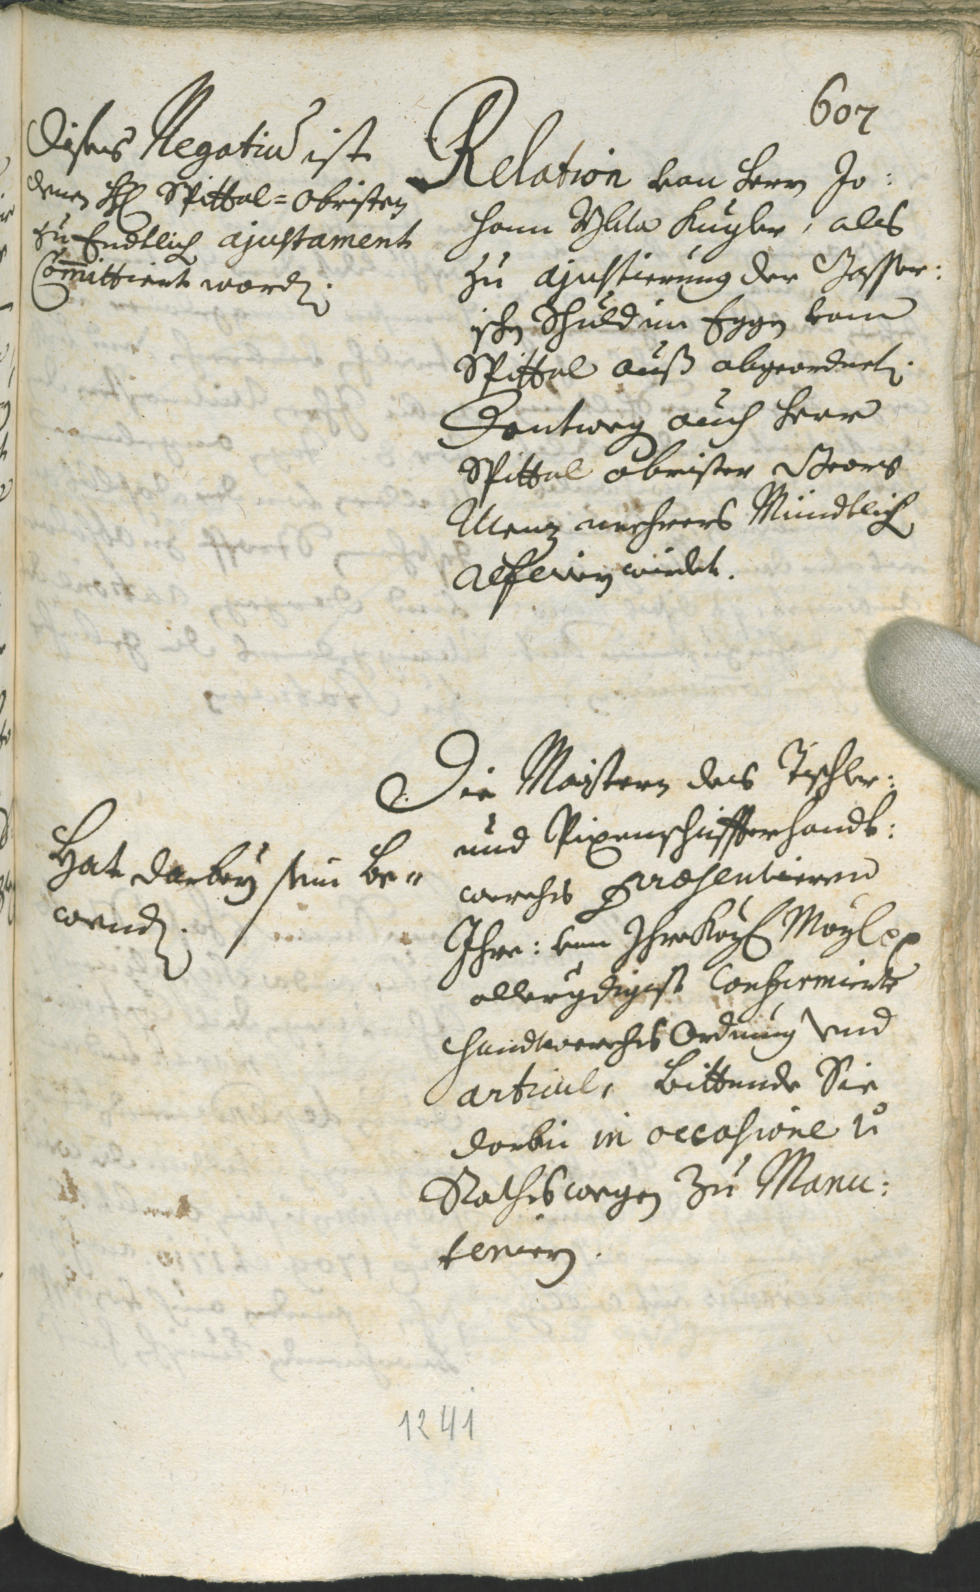 607
Dises Negotiu̅ ist
denen HH Spittal=obristen
zu Endtlich ajustament
Com̅ittiert word.
Relation von Herrn Jo:
hann Kugler, als
zu ajustierung der
ischen Schuld in Eggen vom
Spittal auß abgeordnet.
Dentweg auch Herr
Spittal obrister Georg
Menz mehrers Mündtlich
referiern wirdet.
Hat darbey sein Be=
wend.
Die Maistern des Tischler:
und Pixenschiffterhandt:
werchs præsentieren
Ihre: von Ihro Kay May
allergdigist Confirmierte
Handtwerchs Ordnung und
articul, bittende Sie
darbei in occasione
Rathswegen zu Manu:
tenieren.
1241